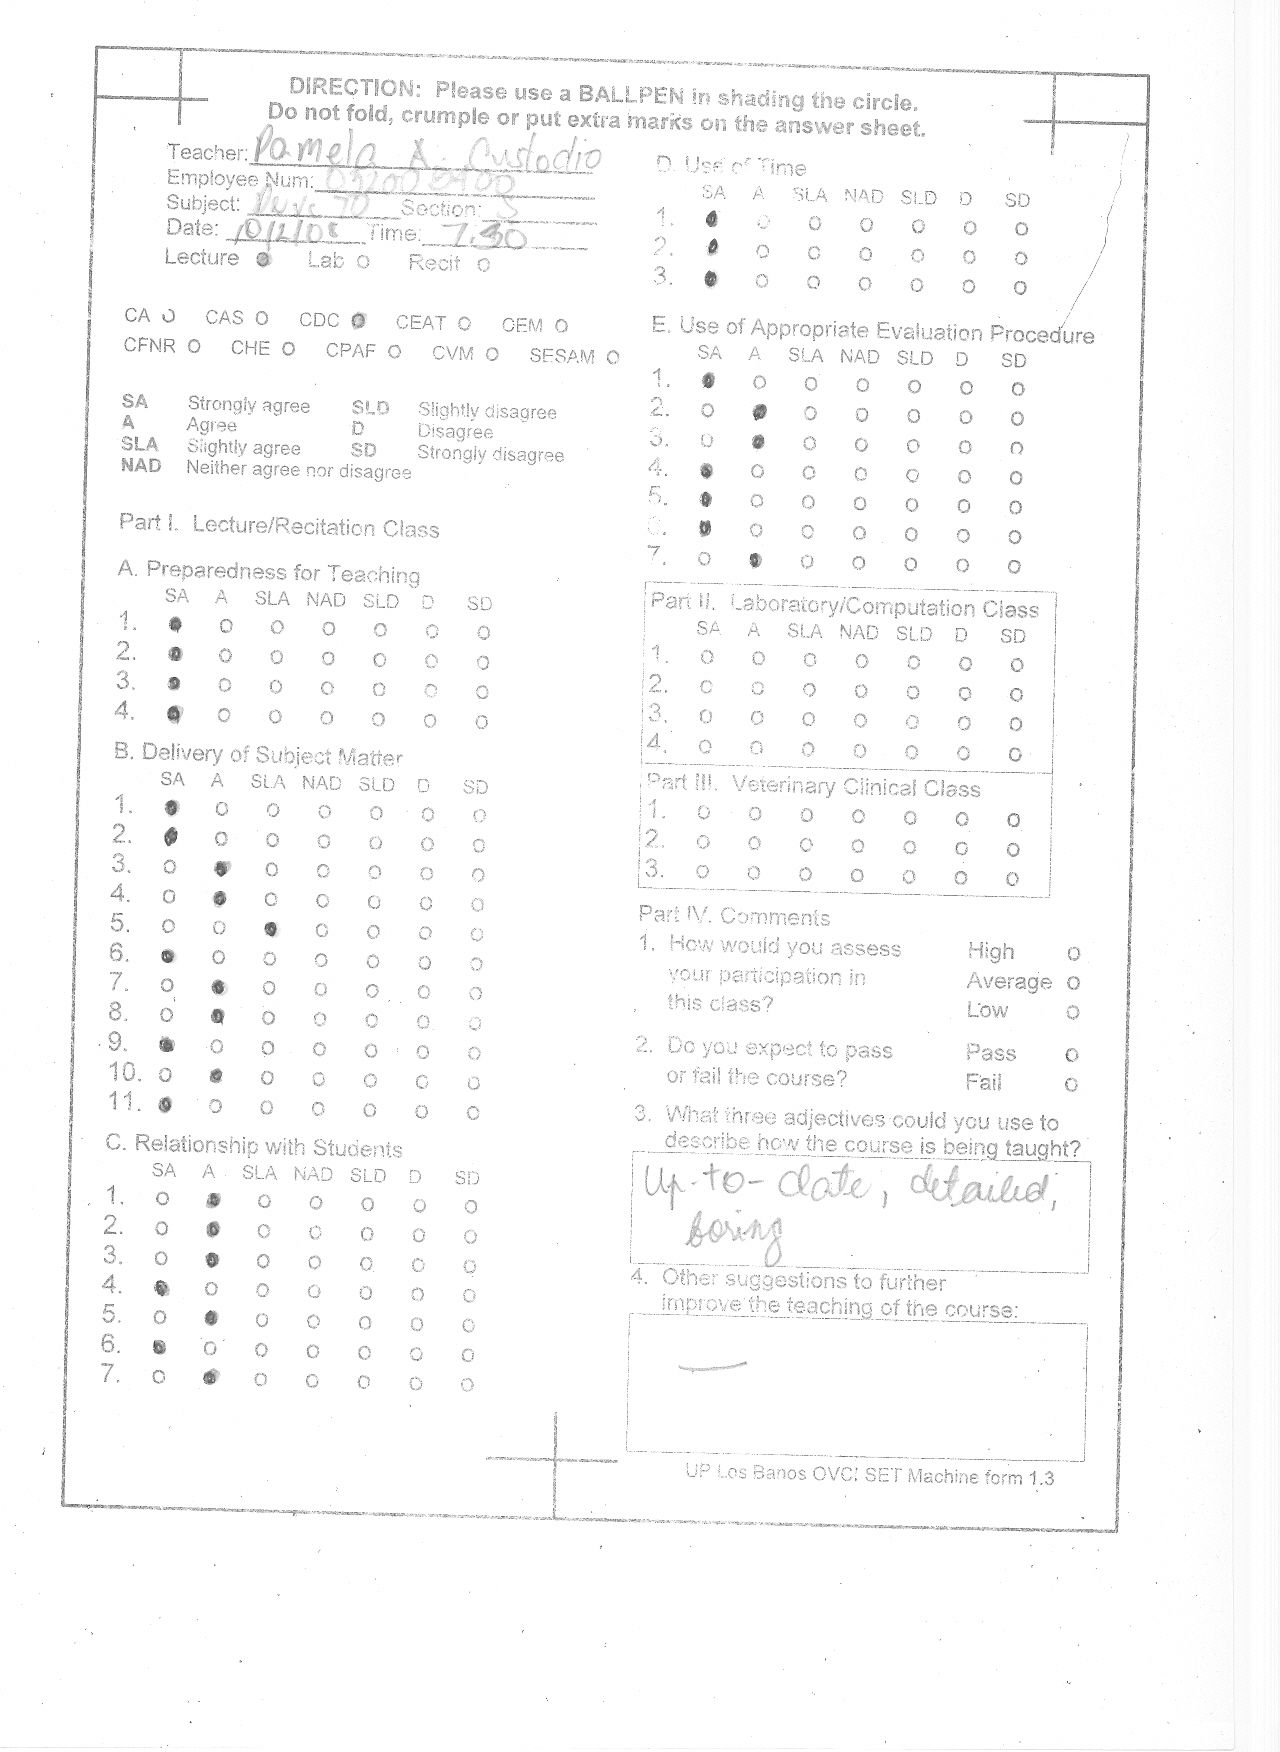 DIRECTION: Please use a BALLPEN in shading the circle.
Do not fold, crumple or put extra marks on the answer sheet.
Teacher: Pamela A. Custodio
Employee Num:
Subject: Section: S
Date: Time: 7:30
Lecture Lab Recit
CA CAS CDC CEAT CEM
CFNR CHE CPAF CVM SESAM
SA Strongly agree SLD Slightly disagree
A Agree D Disagree
SLA Slightly agree SD Strongly disagree
NAD Neither agree nor disagree
Part I. Lecture/Recitation Class
A. Preparedness for Teaching
SA A SLA NAD SLD D SD
1.
2.
3.
4.
B. Delivery of Subject Matter
SA A SLA NAD SLD D SD
1.
2.
3.
4.
5.
6.
7.
8.
9.
10.
11.
C. Relationship with Students
SA A SLA NAD SLD D SD
1.
2.
3.
4.
5.
6.
7.
D. Use of Time
SA A SLA NAD SLD D SD
1.
2.
3.
E. Use of Appropriate Evaluation Procedure
SA A SLA NAD SLD D SD
1.
2.
3.
4.
5.
6.
7.
Part II. Laboratory/Computation Class
SA A SLA NAD SLD D SD
1.
2.
3.
4.
Part III. Veterinary Clinical Class
1.
2.
3.
Part IV. Comments
1. How would you assess High
your participation in Average
this class? Low
2. Do you expect to pass Pass
or fail the course? Fail
3. What three adjectives could you use to
describe how the course is being taught?
Up-to-date, detailed,
boring
4. Other suggestions to further
improve the teaching of the course:
UP Los Banos OVCI SET Machine form 1.3